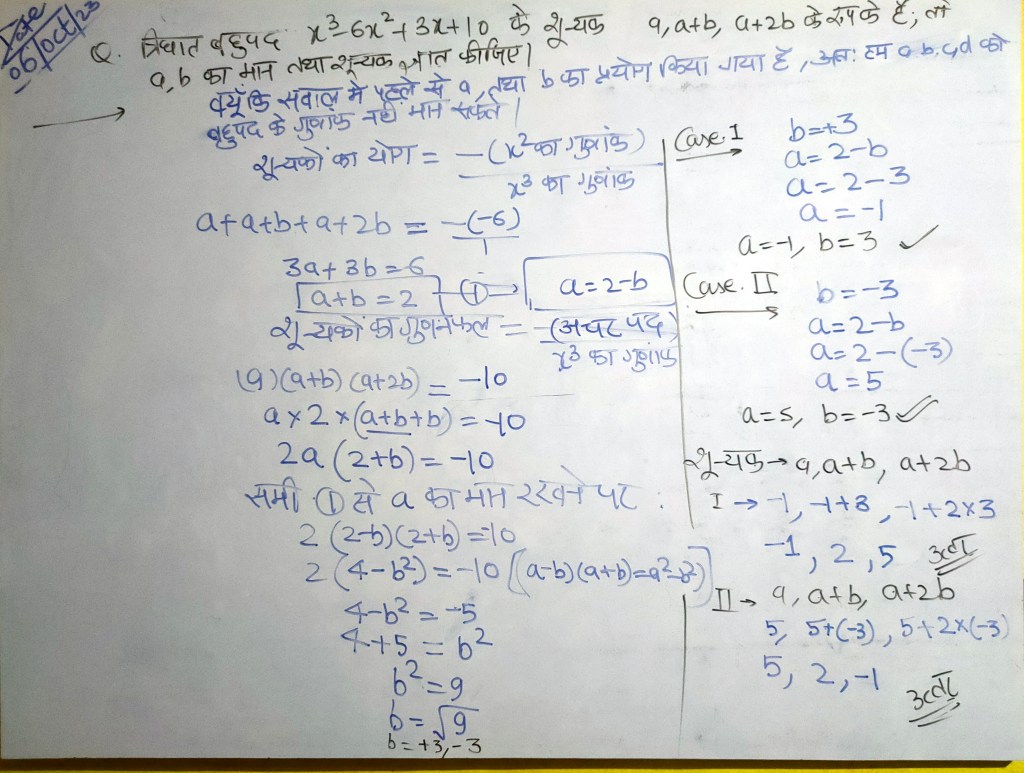 Date
06/oct/23
Q. त्रिघात बहुपद x³-6x²+3x+10 के शून्यक a, a+b, a+2b के रूप के हैं; तो
a, b का मान तथा शून्यक ज्ञात कीजिए।
क्यूँकि सवाल मे पहले से a, तथा b का प्रयोग किया गया है, अतः हम a b, c, d को
बहुपद के गुणांक नही मान सकते।
शून्यकों का योग = -(x² का गुणांक)
x³ का गुणांक
a+a+b+a+2b = -(-6)
1
3a+3b=6
a+b=2 -①→ a=2-b
शून्यकों का गुणनफल = -(अचर पद)
x³ का गुणांक
(a)(a+b)(a+2b) = -10
a×2×(a+b+b) = -10
2a(2+b) = -10
समी ① से a का मान रखने पर :
2(2-b)(2+b)=-10
2(4-b²) = -10 [(a-b)(a+b)=a²-b²)]
4-b² = -5
4+5 = b²
b² = 9
b = √9
b = +3, -3
Case. I
b=+3
a=2-b
a=2-3
a=-1
a=-1, b=3 ✓
Case. II
b=-3
a=2-b
a=2-(-3)
a=5
a=5, b=-3 ✓
शून्यक → a, a+b, a+2b
I → -1, -1+3, -1+2×3
-1, 2, 5 उत्तर
II → a, a+b, a+2b
5, 5+(-3), 5+2×(-3)
5, 2, -1
उत्तर